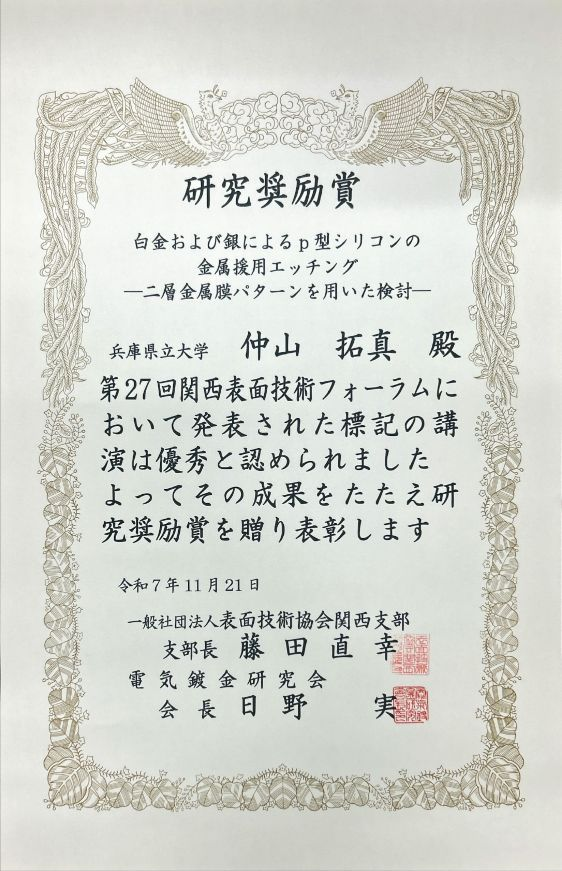 研究奨励賞
白金および銀によるp型シリコンの
金属援用エッチング
―二層金属膜パターンを用いた検討―
兵庫県立大学 仲山 拓真 殿
第27回関西表面技術フォーラムに
おいて発表された標記の講
演は優秀と認められました
よってその成果をたたえ研
究奨励賞を贈り表彰します
令和7年11月21日
一般社団法人表面技術協会関西支部
支部長 藤田直幸
電気鍍金研究会
会長 日野 実